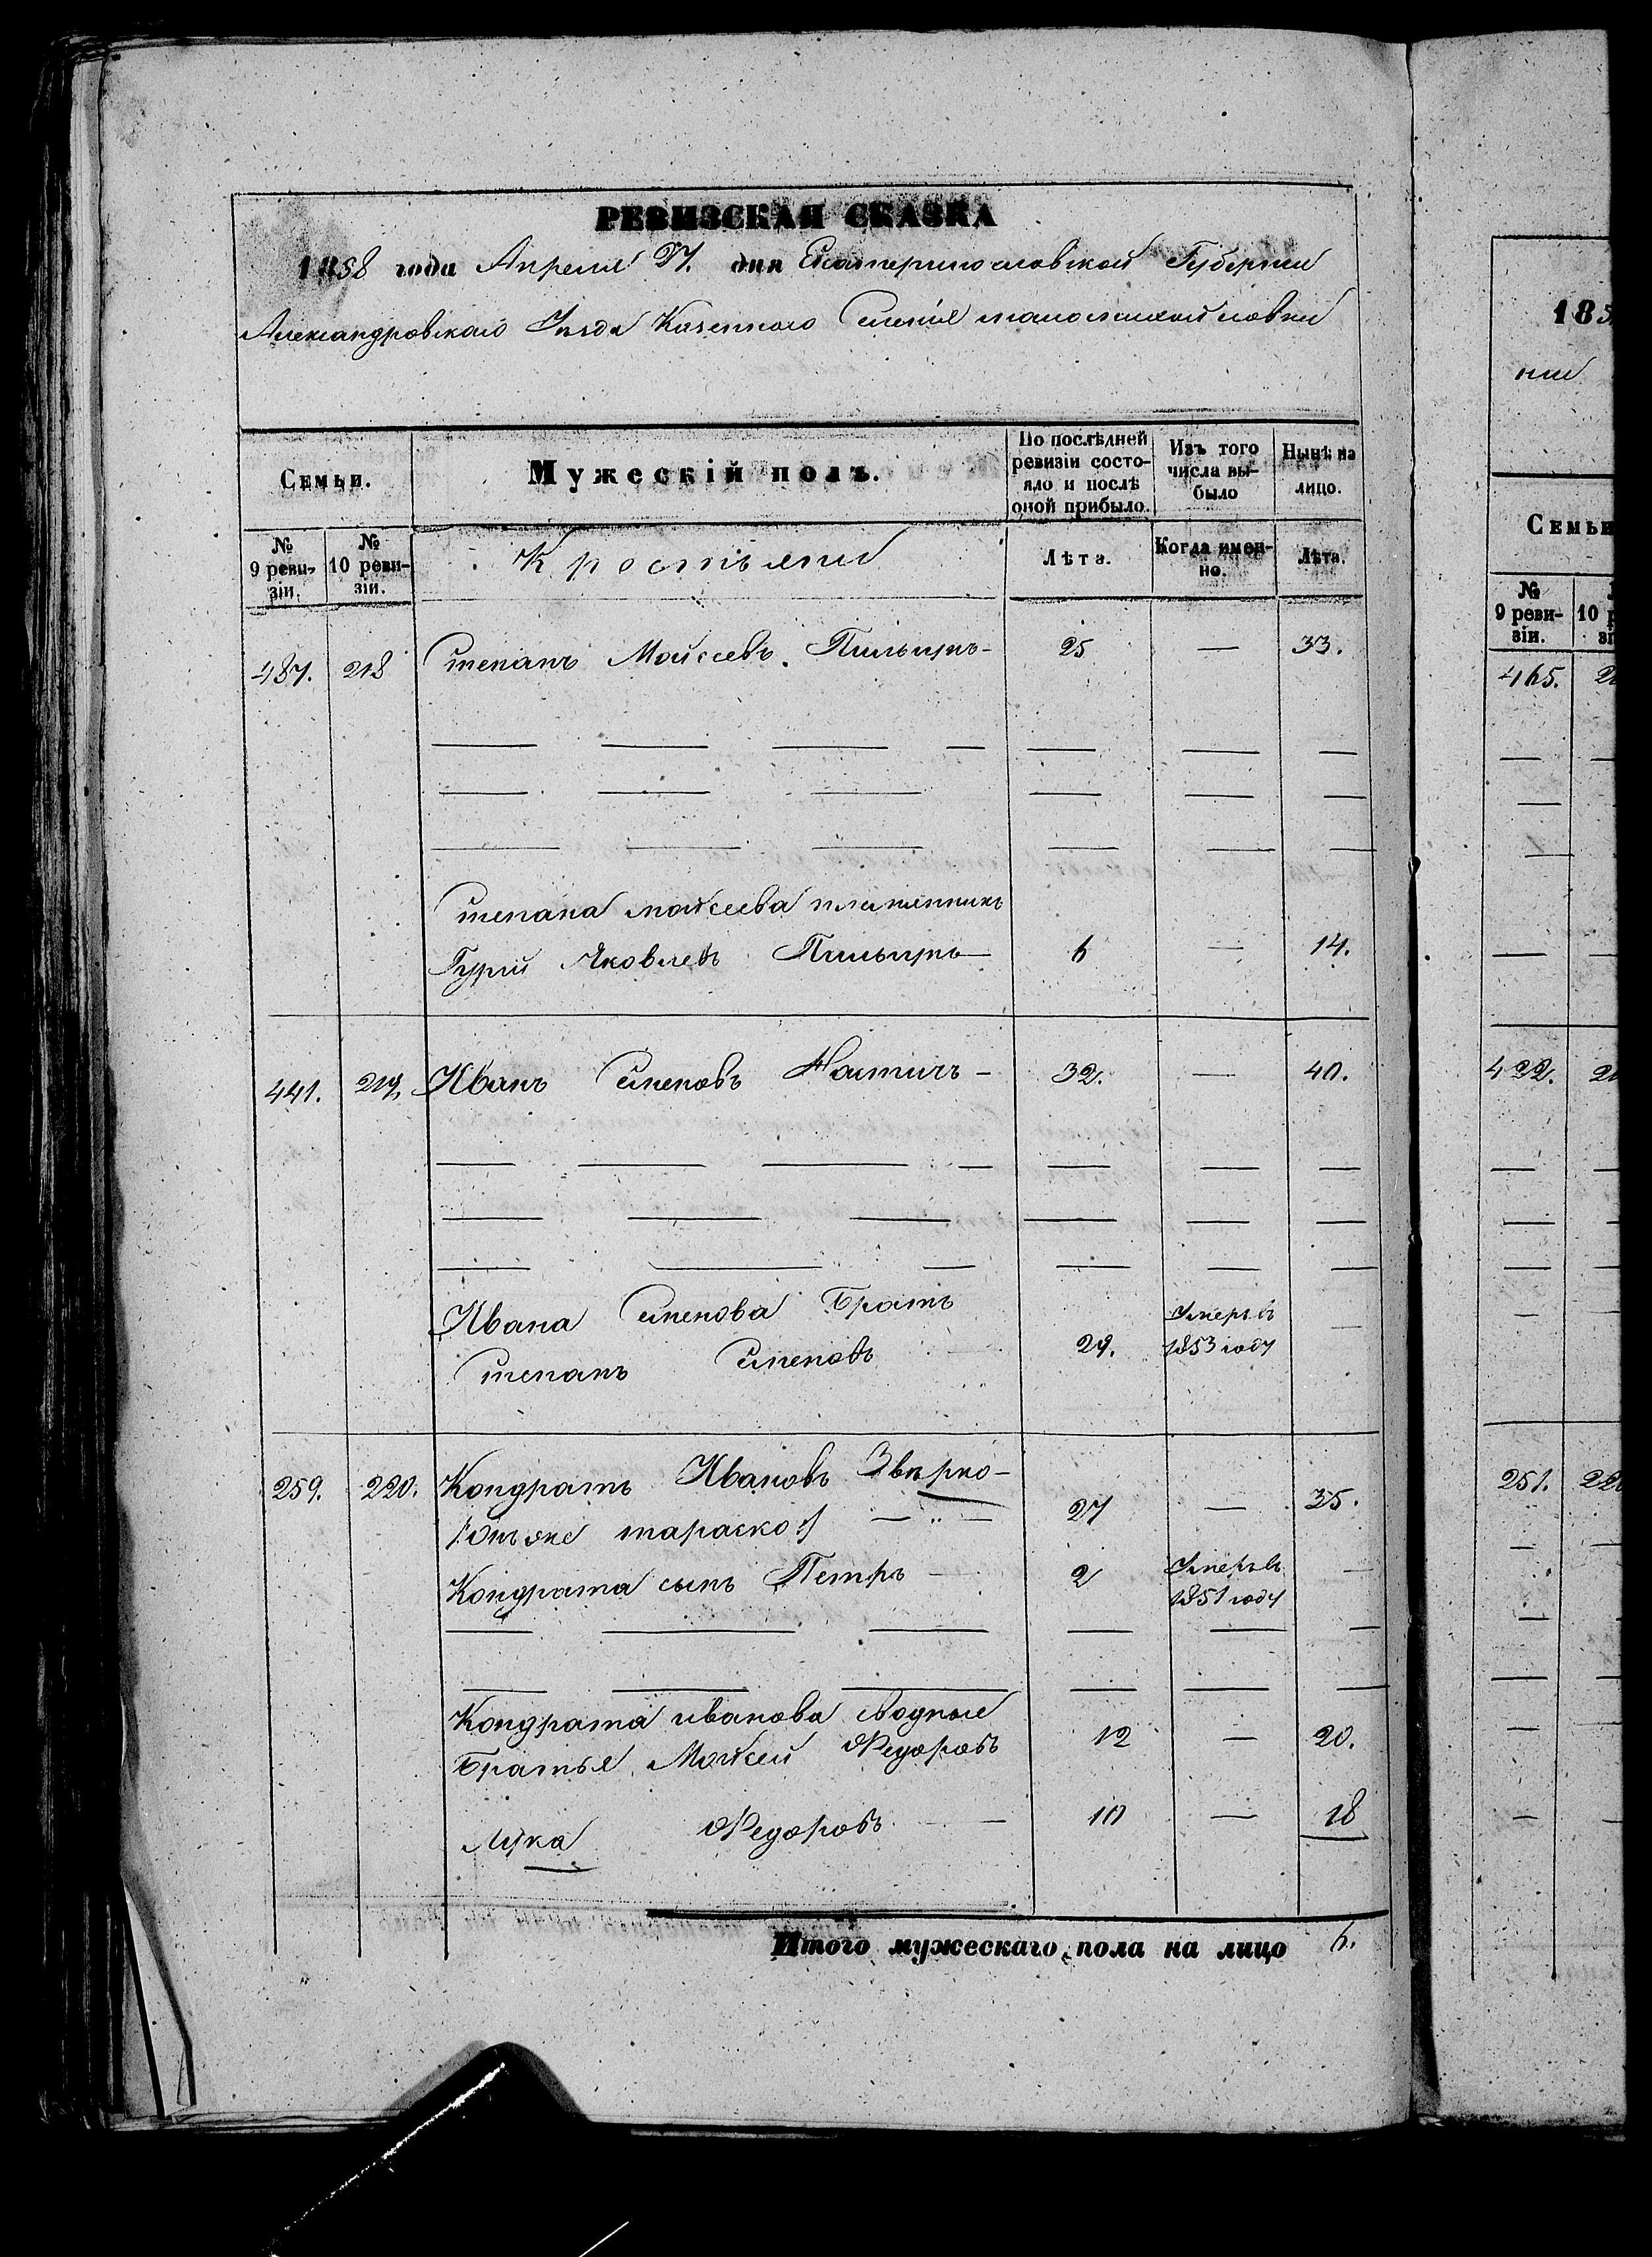 РЕВИЗСКАЯ СКАЗКА
1858 года Апреля 27. дня Екатеринославской Губернии
Александровскаго Уезда Казеннаго Селенія маломихайловки
Семьи.
Мужескій полъ.
По послѣдней ревизіи состояло и послѣ оной прибыло.
Изъ того числа выбыло
Нынѣ на лицо.
№ 9 ревизіи.
№ 10 ревизіи.
Крестьяне
Лѣта.
Когда именно.
Лѣта.
487. 218 Степанъ Мойсеевъ 25 — 33.
Степана мойсеева племянникъ
Гурий Яковлевъ 6 — 14.
441. 219. Иванъ Семеновъ 32. — 40.
Ивана Семенова Братъ
Степанъ Семеновъ 29. Умеръ въ 1853 году —
259. 220. Кондратъ Ивановъ Звѣрко
/:Онъ же тараско:/ 27 — 35.
Кондрата сынъ Петръ 2 Умеръ въ 1851 году —
Кондрата иванова сводные
Братья Мойсей Федоровъ 12 — 20.
Лука Федоровъ — 10 — 18
Итого мужескаго пола на лицо 6.
185
нии
Семьи
№ 9 ревизіи.
465.
422.
251.